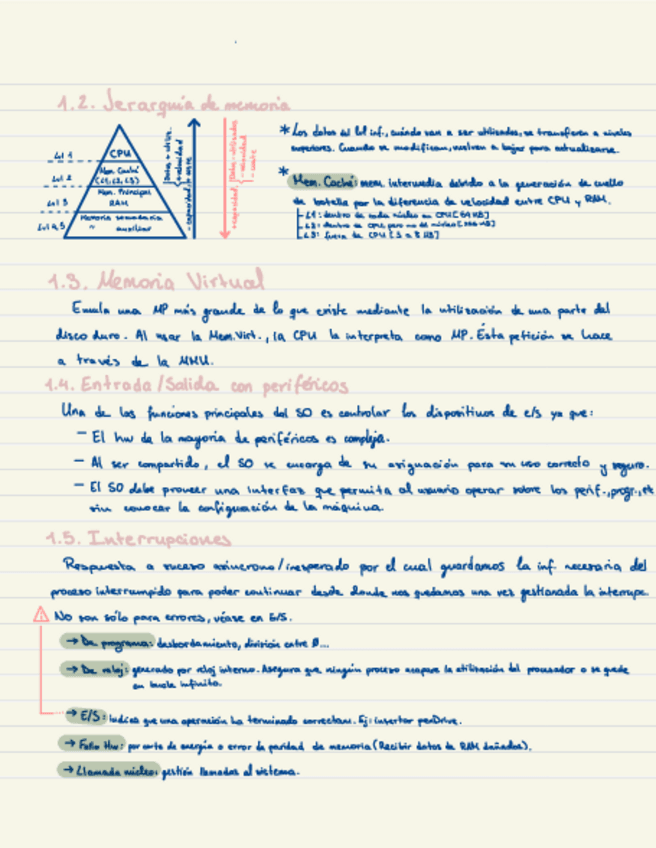 1.2. Jerarquía de memoria
Lvl 1
CPU
Lvl 2
Mem. Caché
(L1, L2, L3)
Lvl 3
Mem. Principal
RAM
Lvl 4,5
Memoria secundaria
" auxiliar
* Los datos del lvl inf., cuándo van a ser utilizados, se transfieren a niveles
superiores. Cuando se modifican, vuelven a bajar para actualizarse.
* Mem. Caché: mem. intermedia debido a la generación de cuello
de botella por la diferencia de velocidad entre CPU y RAM.
L1: dentro de cada núcleo en CPU [64 KB]
L2: dentro de CPU, pero no de núcleo [256 KB]
L3: fuera de CPU
1.3. Memoria Virtual
Emula una MP más grande de lo que existe mediante la utilización de una parte del
disco duro. Al usar la Mem. Virt., la CPU la interpreta como MP. Ésta petición se hace
a través de la MMU.
1.4. Entrada/Salida con periféricos
Una de las funciones principales del SO es controlar los dispositivos de e/s ya que:
- El hw de la mayoría de periféricos es compleja.
- Al ser compartido, el SO se encarga de su asignación para su uso correcto y seguro.
- El SO debe proveer una interfaz que permita al usuario operar sobre los perif., progr., etc
sin conocer la configuración de la máquina.
1.5. Interrupciones
Respuesta a suceso asíncrono/inesperado por el cual guardamos la inf. necesaria del
proceso interrumpido para poder continuar desde donde nos quedamos una vez gestionada la interrupc.
No son sólo para errores, véase en E/S.
→ De programa: desbordamiento, división entre 0...
→ De reloj: generado por reloj interno. Asegura que ningún proceso acapare la utilización del procesador o se quede
en bucle infinito.
→ E/S: indica que una operación ha terminado correctam. Ej: insertar penDrive.
→ Fallo Hw: por corte de energía o error de paridad de memoria (Recibir datos de RAM dañados).
→ Llamada núcleo: gestión llamadas al sistema.